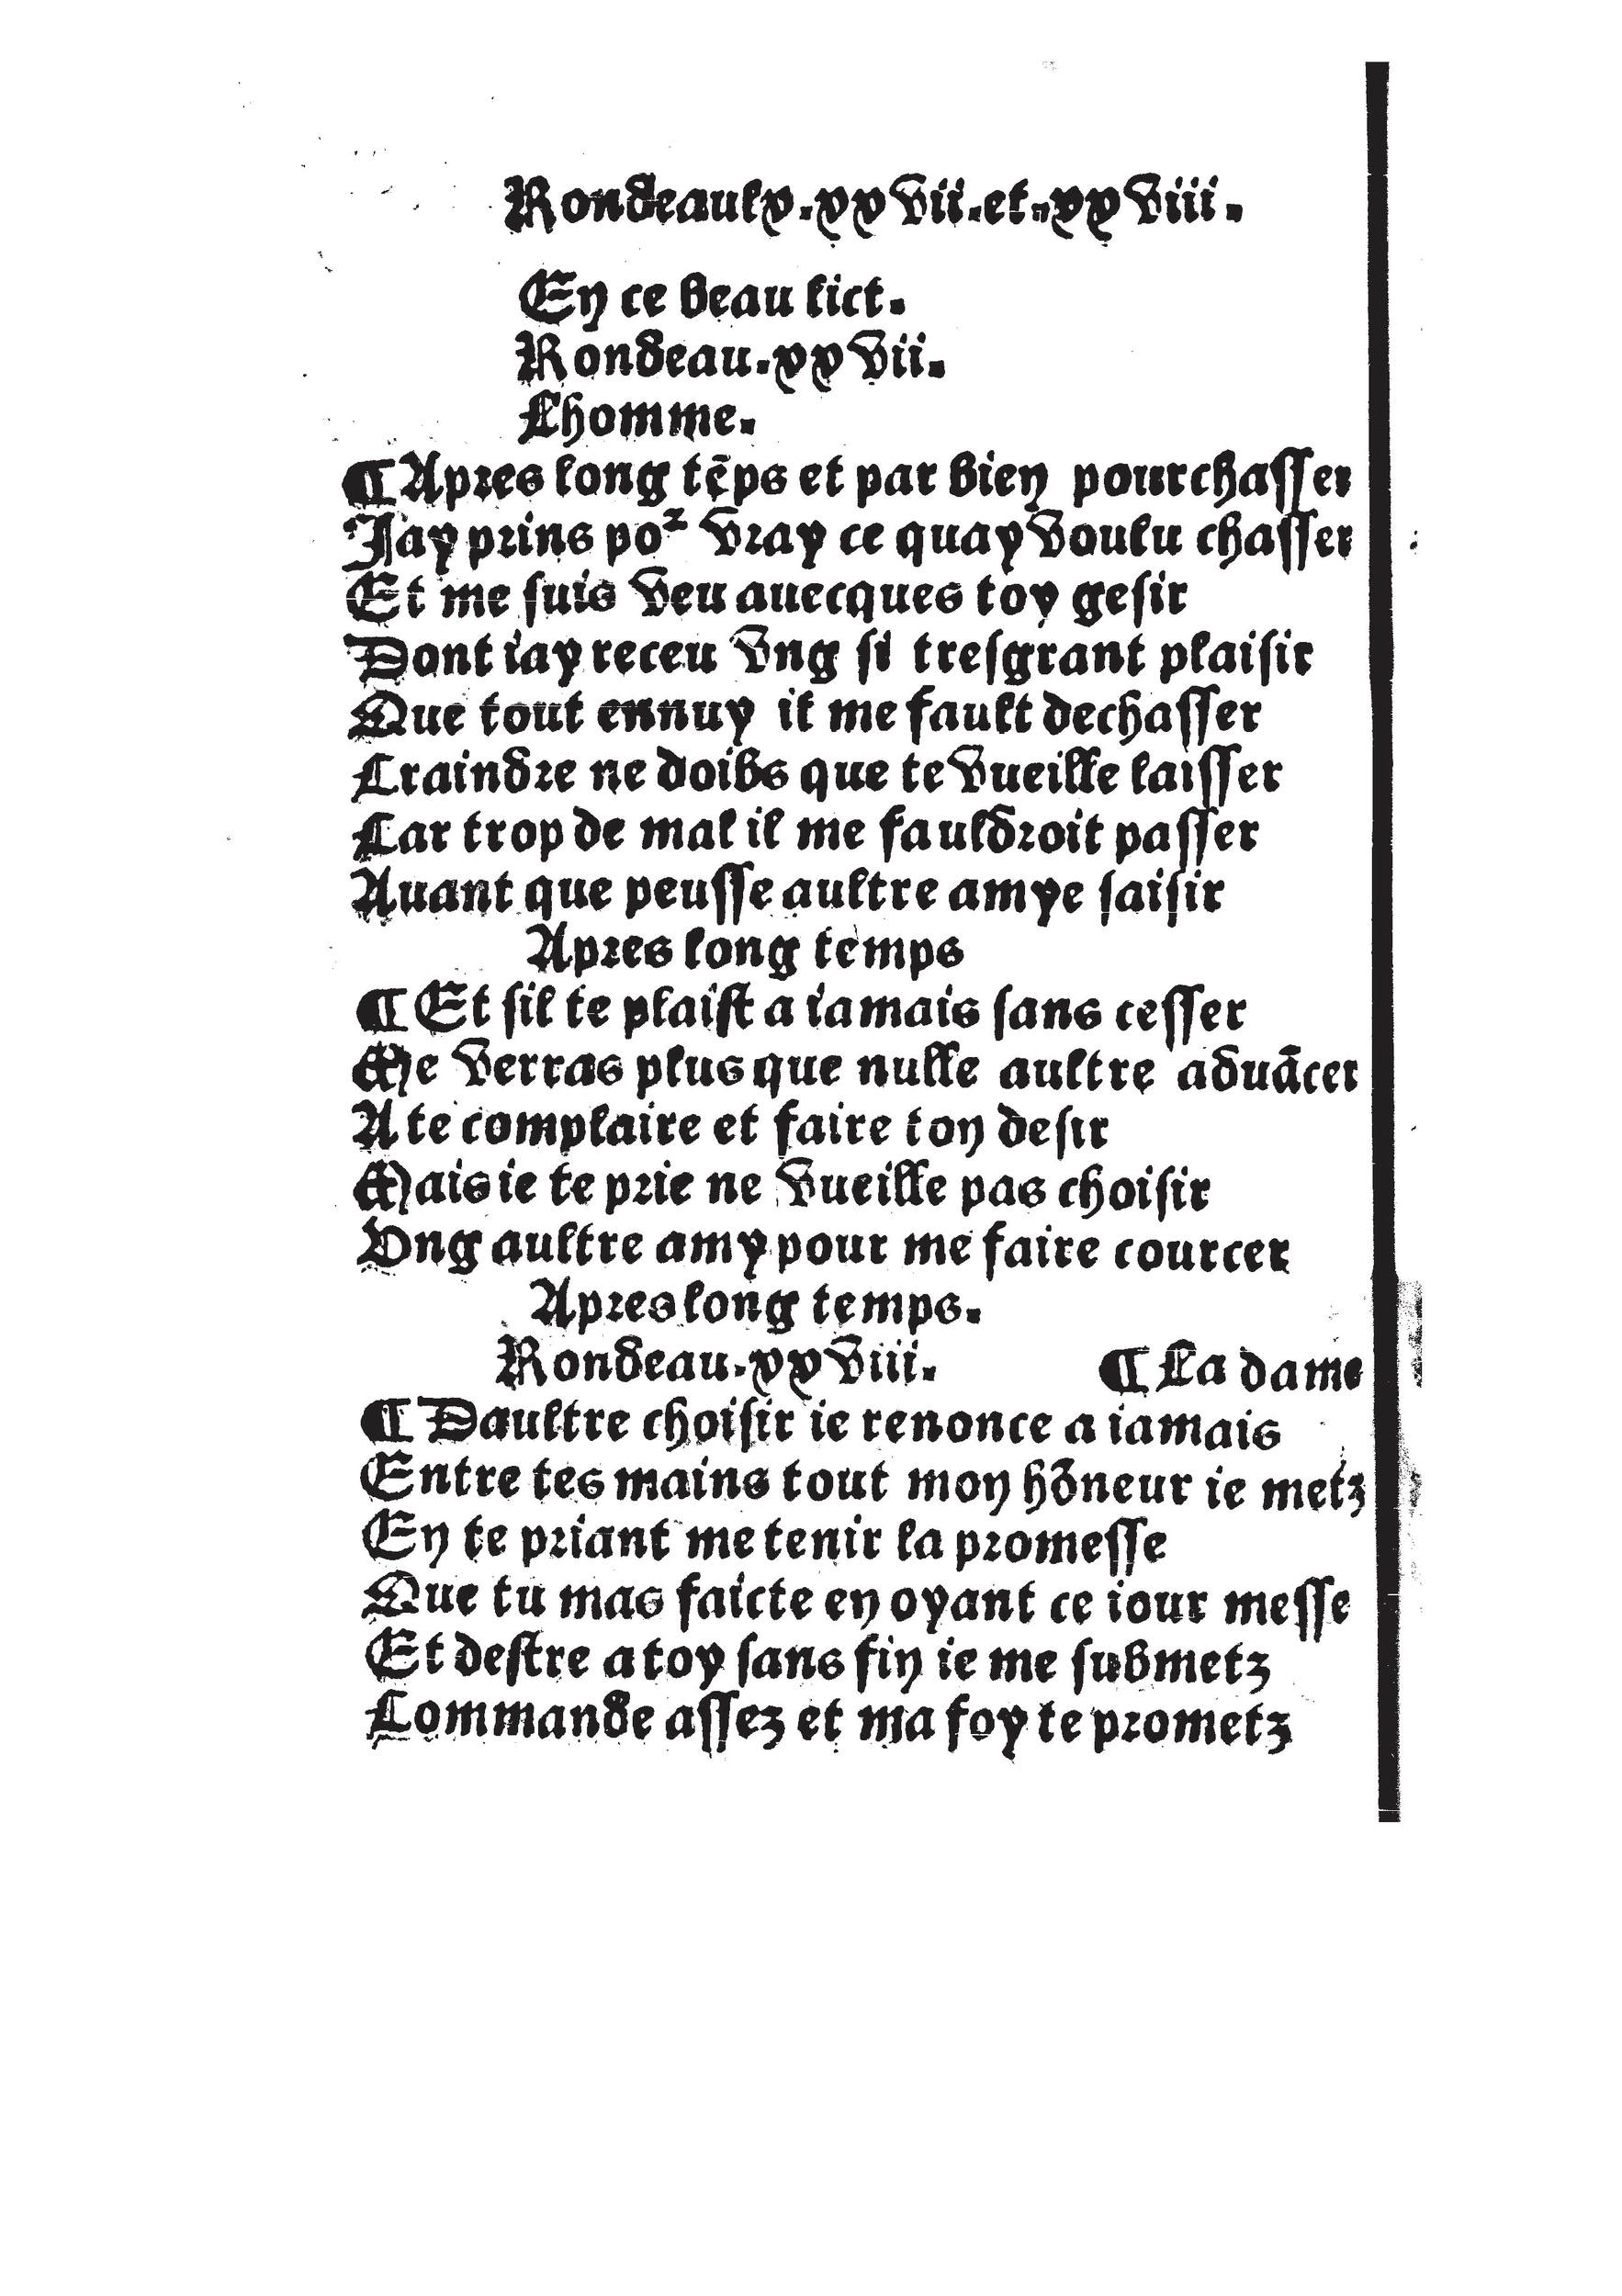 Rondeaulx.xxvii.et.xxviii.
En ce beau lict.
Rondeau.xxvii.
Lhomme.
¶Apres long tēps et par bien pourchasser
Jay prins poᷣ vray ce quay voulu chasser
Et me suis veu auecques toy gesir
Dont iay receu vng si tresgrant plaisir
Que tout ennuy il me fault dechasser
Craindre ne doibs que te vueille laisser
Car trop de mal il me fauldroit passer
Auant que peusse aultre amye saisir
Apres long temps
¶Et sil te plaist a iamais sans cesser
Me verras plus que nulle aultre aduācer
A te complaire et faire ton desir
Mais ie te prie ne vueille pas choisir
Vng aultre amy pour me faire courcer
Apres long temps.
Rondeau.xxviii. ¶La dame
¶Daultre choisir ie renonce a iamais
Entre tes mains tout mon hōneur ie metz
En te priant me tenir la promesse
Que tu mas faicte en oyant ce iour messe
Et destre a toy sans fin ie me submetz
Commande assez et ma foy te prometz